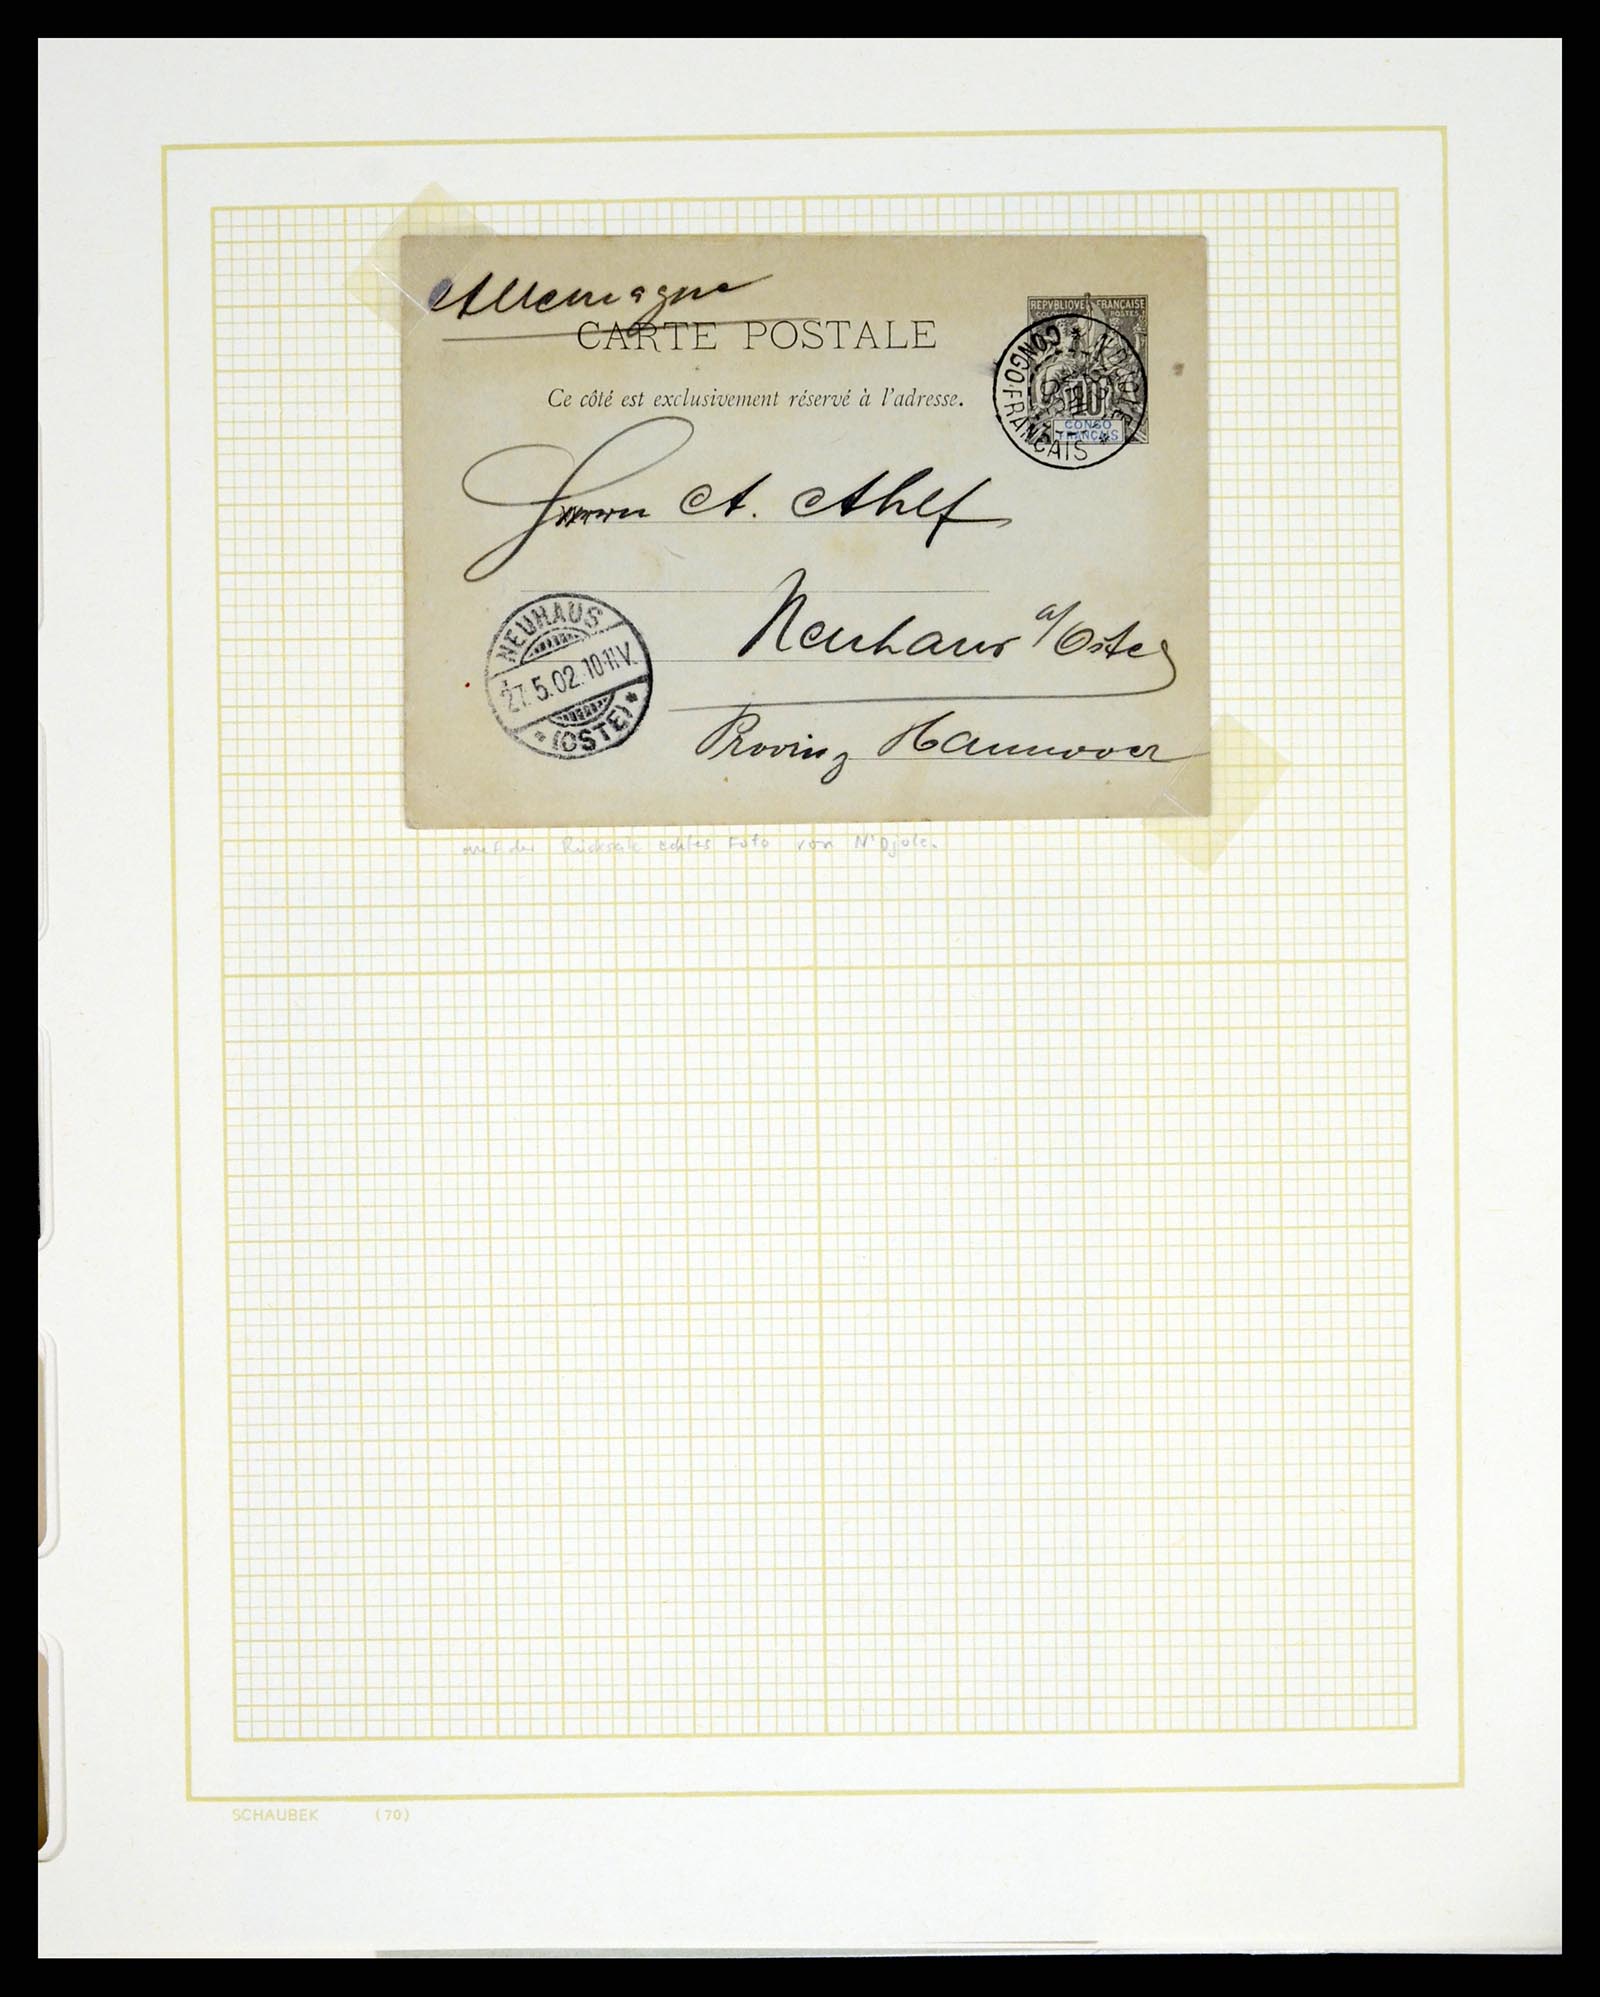 Allemagne
CARTE POSTALE
Ce côté est exclusivement réservé à l'adresse.
REPVBLIQVE FRANÇAISE
COLONIES POSTES
10
CONGO
FRANÇAIS
N'DJOLE
CONGO-FRANÇAIS
Herrn A. Ahlf
Neuhaus a/Oste
Provinz Hannover
NEUHAUS
27.5.02.10-11V.
* (OSTE) *
auf der Rückseite echtes Foto von N'Djole.
SCHAUBEK (70)